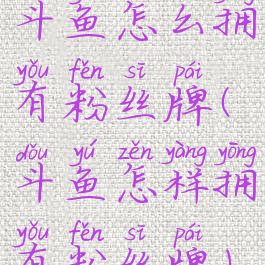 斗鱼怎么拥
yǒu fěn sī pái
有粉丝牌(
dǒu yú zěn yàng yōng
斗鱼怎样拥
yǒu fěn sī pái
有粉丝牌)